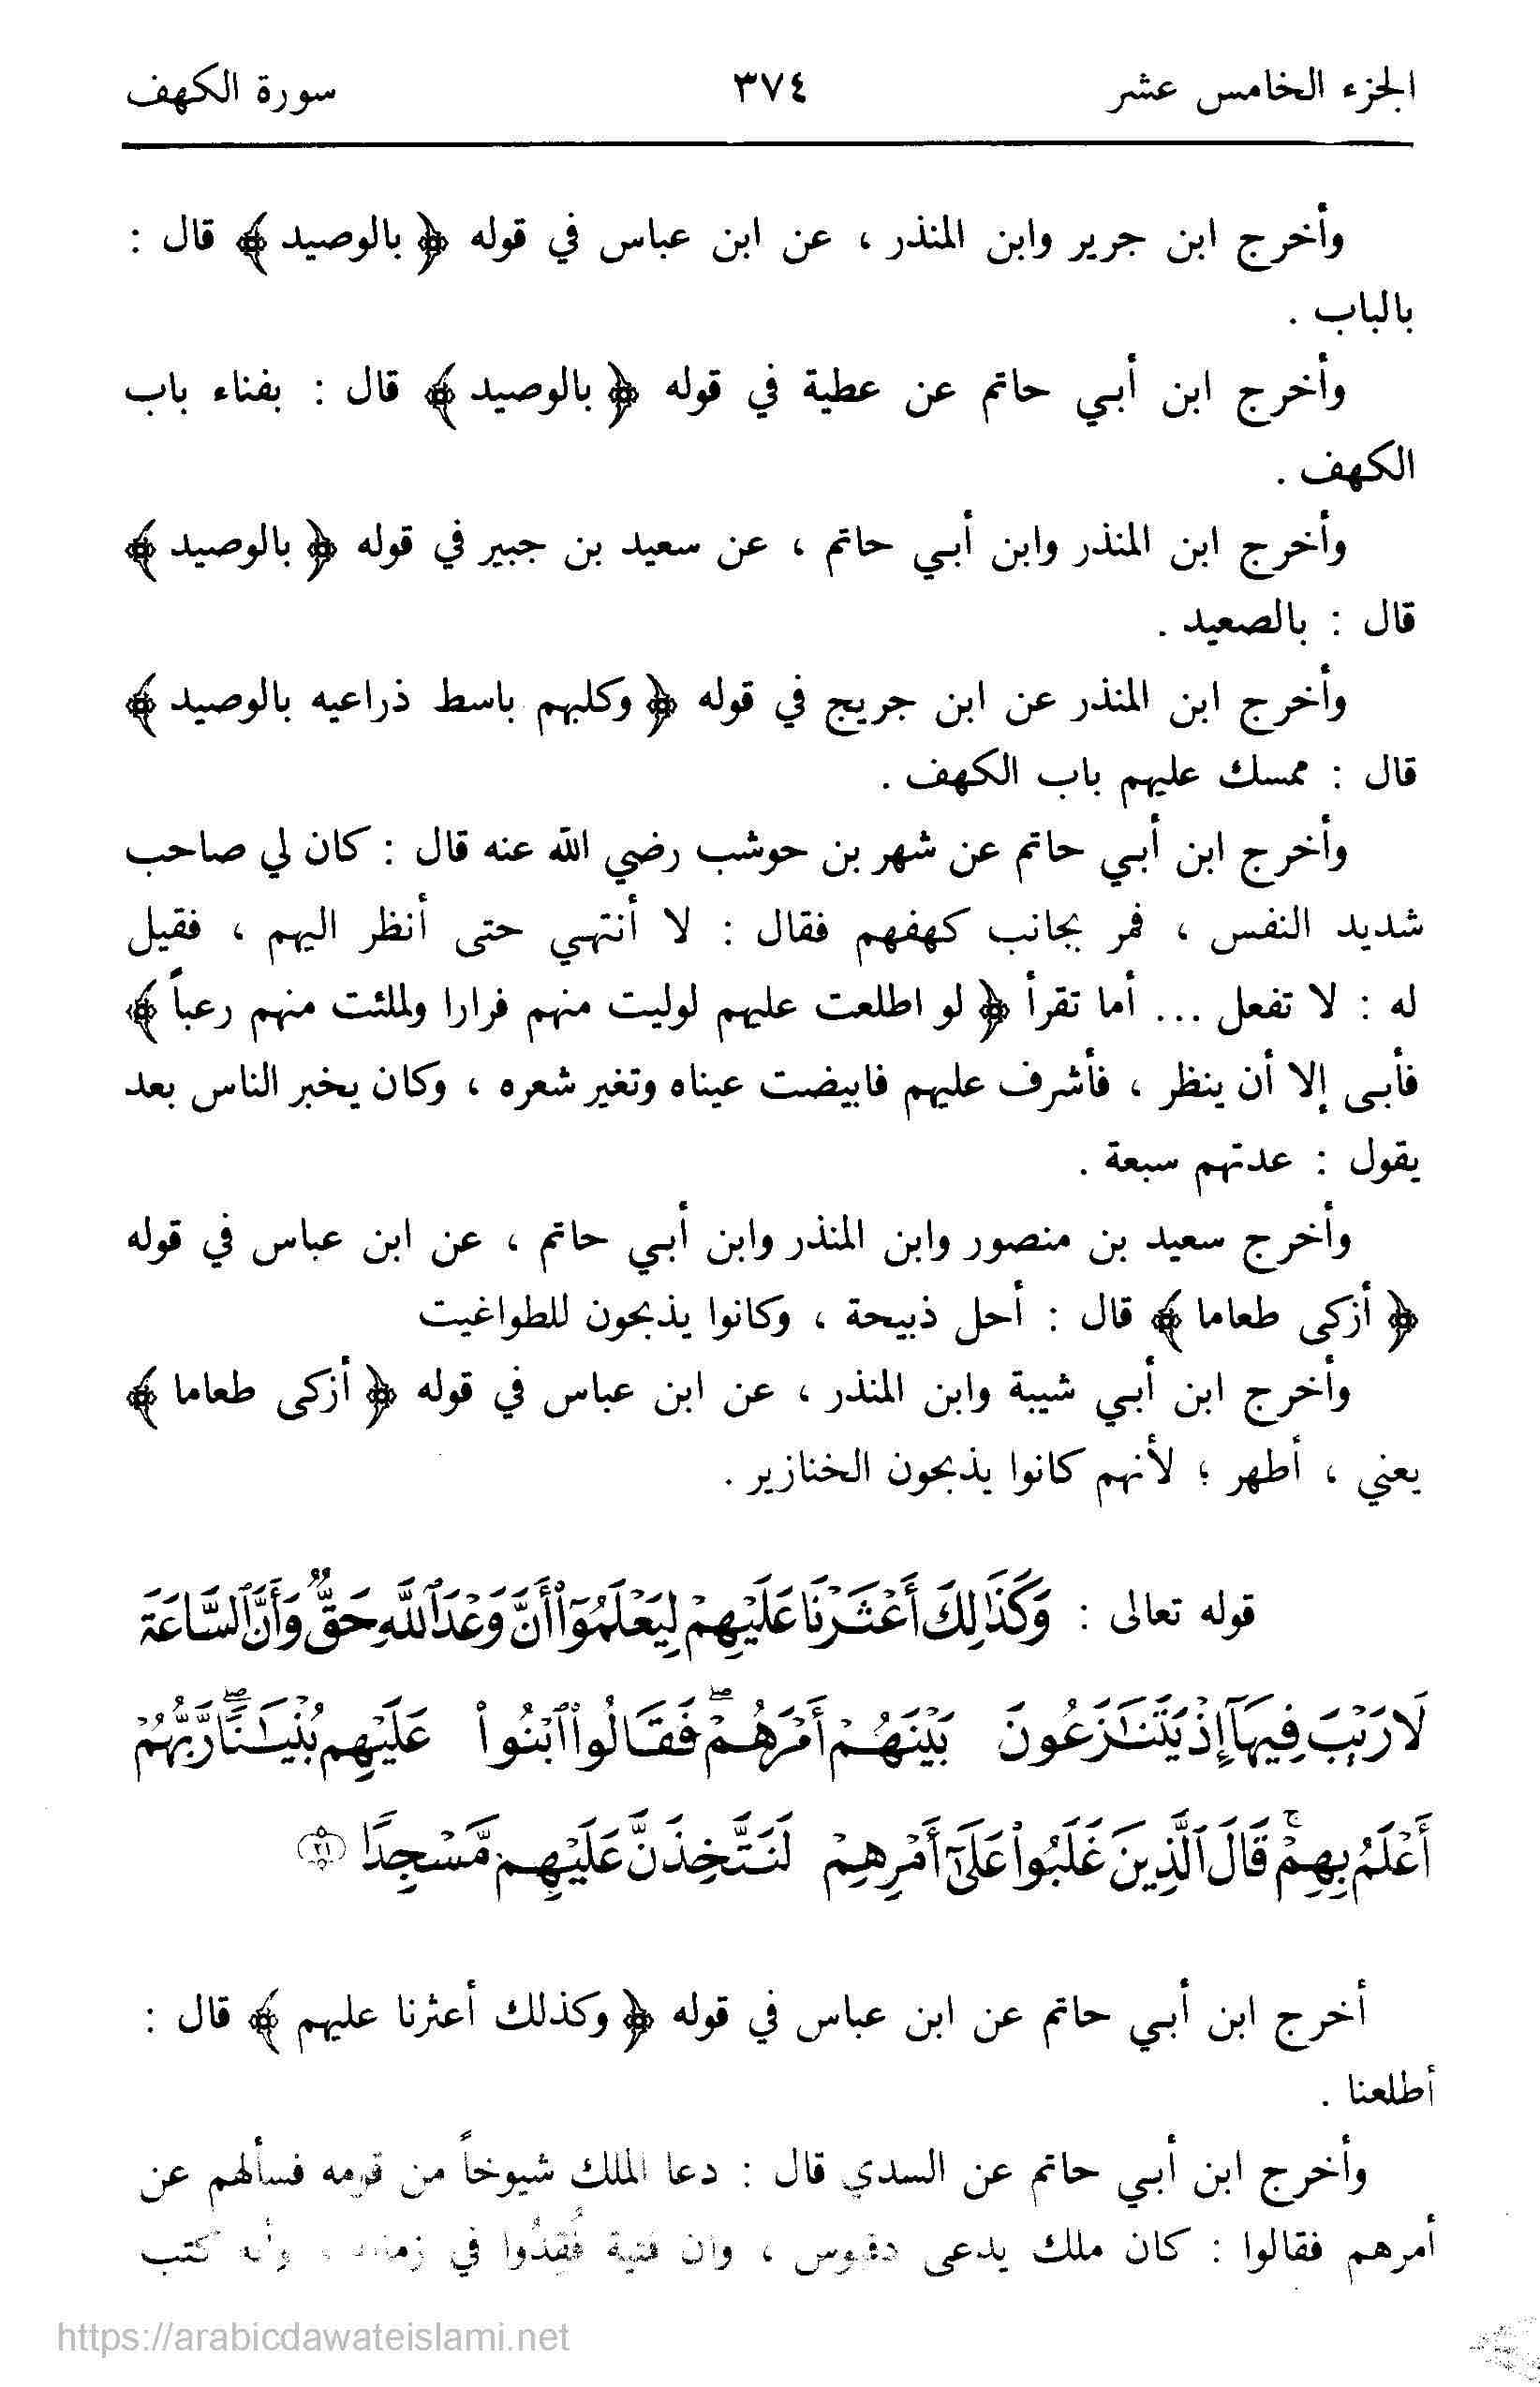 الجزء الخامس عشر ٣٧٤ سورة الكهف
وأخرج ابن جرير وابن المنذر ، عن ابن عباس في قوله ﴿ بالوصيد ﴾ قال :
بالباب .
وأخرج ابن أبي حاتم عن عطية في قوله ﴿ بالوصيد ﴾ قال : بفناء باب
الكهف .
وأخرج ابن المنذر وابن أبي حاتم ، عن سعيد بن جبير في قوله ﴿ بالوصيد ﴾
قال : بالصعيد .
وأخرج ابن المنذر عن ابن جريج في قوله ﴿ وكلبهم باسط ذراعيه بالوصيد ﴾
قال : ممسك عليهم باب الكهف .
وأخرج ابن أبي حاتم عن شهر بن حوشب رضي الله عنه قال : كان لي صاحب
شديد النفس ، فمر بجانب كهفهم فقال : لا أنتهي حتى أنظر اليهم ، فقيل
له : لا تفعل ... أما تقرأ ﴿ لو اطلعت عليهم لوليت منهم فرارا ولملئت منهم رعباً ﴾
فأبى إلا أن ينظر ، فأشرف عليهم فابيضت عيناه وتغير شعره ، وكان يخبر الناس بعد
يقول : عدتهم سبعة .
وأخرج سعيد بن منصور وابن المنذر وابن أبي حاتم ، عن ابن عباس في قوله
﴿ أزكى طعاما ﴾ قال : أحل ذبيحة ، وكانوا يذبحون للطواغيت
وأخرج ابن أبي شيبة وابن المنذر ، عن ابن عباس في قوله ﴿ أزكى طعاما ﴾
يعني ، أطهر ؛ لأنهم كانوا يذبحون الخنازير .
قوله تعالى : وَكَذَٰلِكَ أَعْثَرْنَا عَلَيْهِمْ لِيَعْلَمُوٓا۟ أَنَّ وَعْدَ ٱللَّهِ حَقٌّ وَأَنَّ ٱلسَّاعَةَ
لَا رَيْبَ فِيهَآ إِذْ يَتَنَٰزَعُونَ بَيْنَهُمْ أَمْرَهُمْ ۖ فَقَالُوا۟ ٱبْنُوا۟ عَلَيْهِم بُنْيَٰنًا ۖ رَّبُّهُمْ
أَعْلَمُ بِهِمْ ۚ قَالَ ٱلَّذِينَ غَلَبُوا۟ عَلَىٰٓ أَمْرِهِمْ لَنَتَّخِذَنَّ عَلَيْهِم مَّسْجِدًا ﴿٢١﴾
أخرج ابن أبي حاتم عن ابن عباس في قوله ﴿ وكذلك أعثرنا عليهم ﴾ قال :
أطلعنا .
وأخرج ابن أبي حاتم عن السدي قال : دعا الملك شيوخاً من قومه فسألهم عن
أمرهم فقالوا : كان ملك يدعى دقيوس ، وان فتية فُقِدُوا في زمانه ، وأنه كتب
https://arabicdawateislami.net